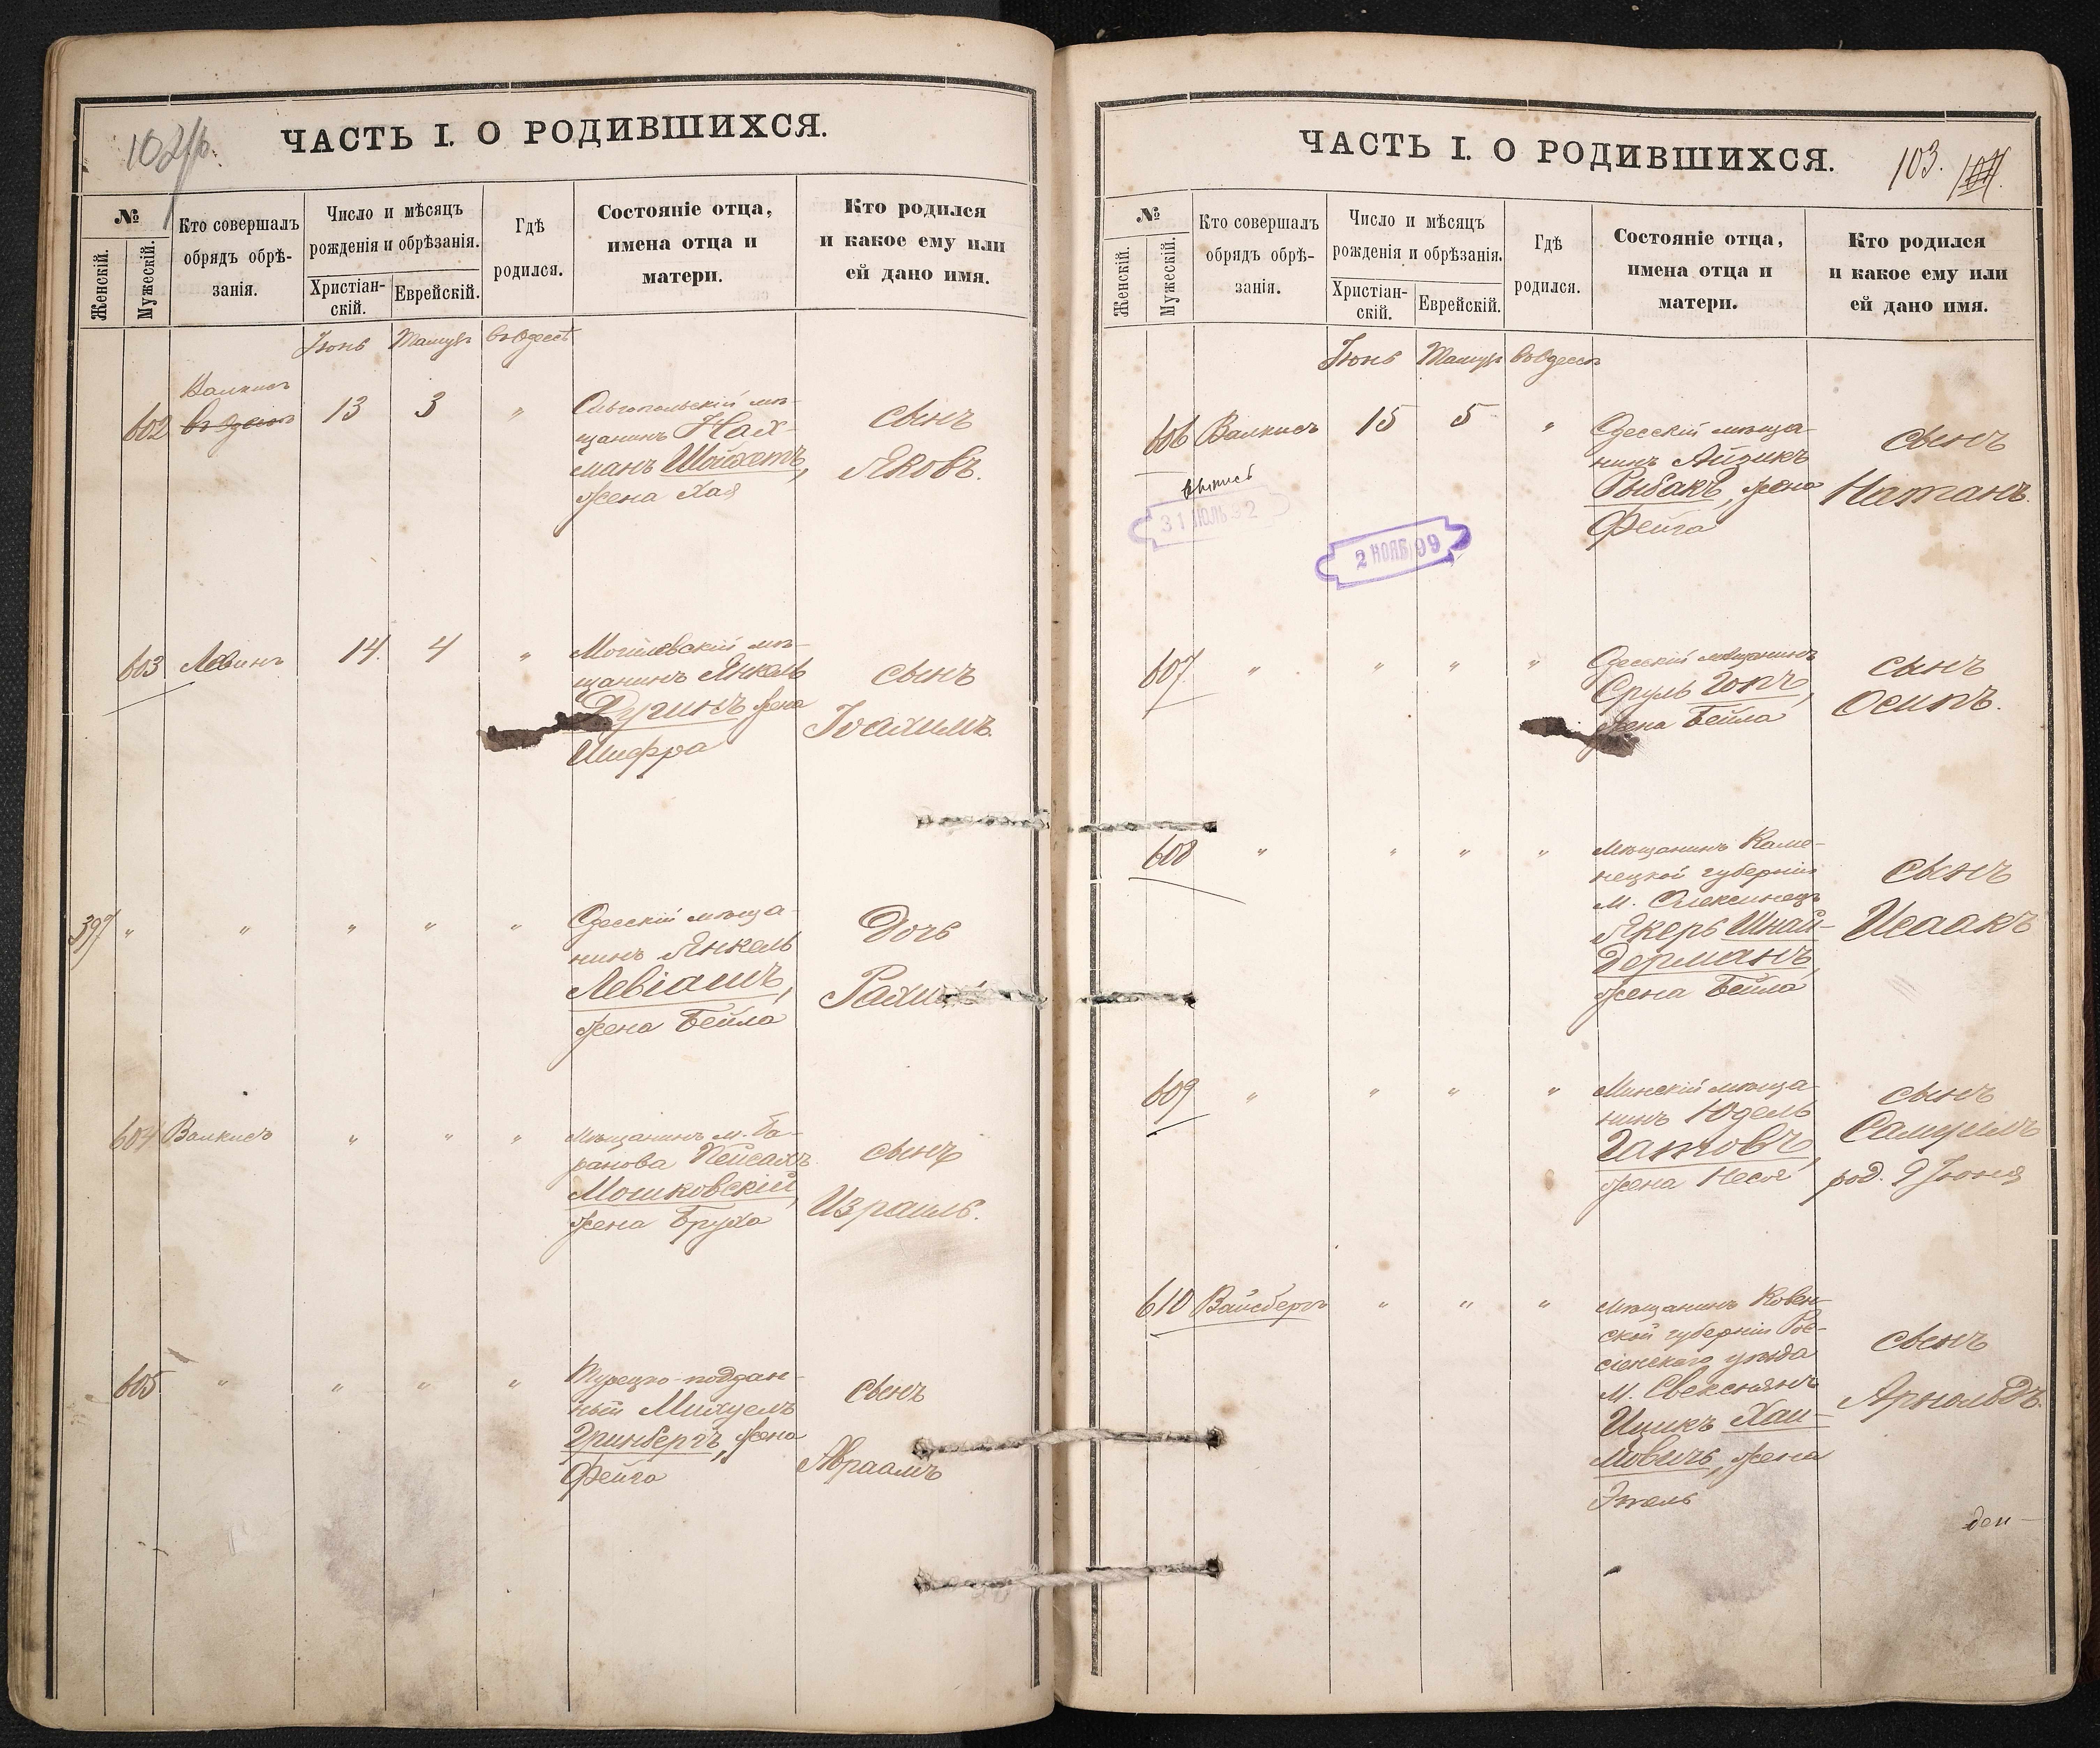 102/б.
ЧАСТЬ I. О РОДИВШИХСЯ.
№
Женскій.
Мужескій.
Кто совершалъ
обрядъ обрѣ-
занія.
Число и мѣсяцъ
рожденія и обрѣзанія.
Христіан-
скій.
Еврейскій.
Гдѣ
родился.
Состояніе отца,
имена отца и
матери.
Кто родился
и какое ему или
ей дано имя.
Іюнь Тамузъ въ Одессѣ
602
Валкисъ
13 3 "
Ольгопольскій мѣ-
щанинъ Нах-
манъ Шойхетъ,
жена Хая
сынъ
Яковъ.
603 Левинъ 14. 4 "
Могилевскій мѣ-
щанинъ Янкель
Дугинъ жена
Шифра
сынъ
Іоахимъ.
397 " " " " "
Одесскій мѣща-
нинъ Янкель
Левіашъ,
жена Бейла
Дочь
604 Валкисъ " " "
Мѣщанинъ м. Ба-
ранова Пейсахъ
Мошковскій,
жена Бруха
сынъ
Израиль.
605 " " " "
Турецко-поддан-
ный Михуель
Гринбергъ, жена
Фейга
сынъ
Авраамъ
ЧАСТЬ I. О РОДИВШИХСЯ.
103. 104.
№
Женскій.
Мужескій.
Кто совершалъ
обрядъ обрѣ-
занія.
Число и мѣсяцъ
рожденія и обрѣзанія.
Христіан-
скій.
Еврейскій.
Гдѣ
родился.
Состояніе отца,
имена отца и
матери.
Кто родился
и какое ему или
ей дано имя.
Іюнь Тамузъ въ Одессѣ
606 Валкисъ 15 5 "
выпись
31 ИЮЛЬ 92
2 НОЯБ 99
Одесскій мѣща-
нинъ Айзикъ
Рыбакъ, жена
Фейга
сынъ
Натанъ.
607 " " " "
Одесскій мѣщанинъ
Сруль Гопъ,
жена Бейла
сынъ
Осипъ.
608 " " " "
Мѣщанинъ Каме-
нецкой губерніи
м. Олексинецъ
Якеръ Шнай-
дерманъ,
жена Бейла
сынъ
Исаакъ
609 " " " "
Минскій мѣща-
нинъ Юдель
Гатовъ,
жена Несе
сынъ
Самуилъ
род. 9 Іюня
610 Вайсбергъ " " "
Мѣщанинъ Ковен-
ской губерніи Рос-
сіенскаго уѣзда
м. Свекснянъ
Ицикъ Хаи-
мовичъ, жена
Этель
сынъ
Арнольдъ.
ден-